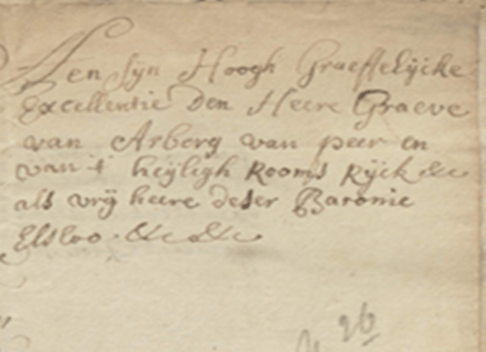 Aen sijn Hoogh Graeffelijcke
Excellentie Den Heere Graeve
van Arberg van peer en
van 't heijligh Rooms Rijck &c
als vrij heere deser Baronie
Elsloo. &c &c
26